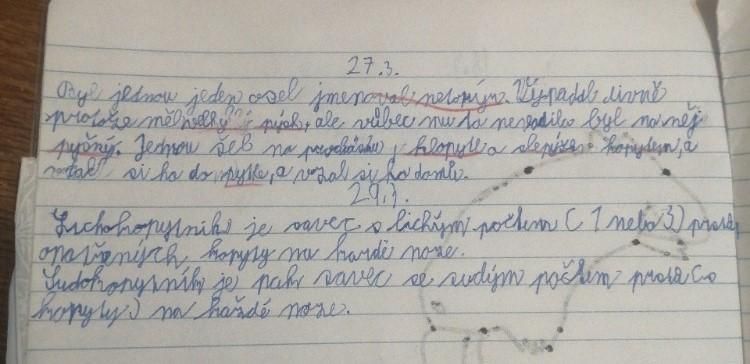 27.3.
Byl jednou jeden osel jmenoval netopýr. Vypadal divně
protože měl velký pysk, ale vůbec mu to nevadilo byl na něj
pyšný. Jednou šel na procházku, klopytl a kopytem, a
si ho do pytle, a vzal si ho domů.
29.3.
Lichokopytníki je savec s lichým počtem (1 nebo 3) prstů
opatřených kopyty na každé noze.
Sudokopytník je pak savec se sudým počtem prstů (s
kopyty) na každé noze.